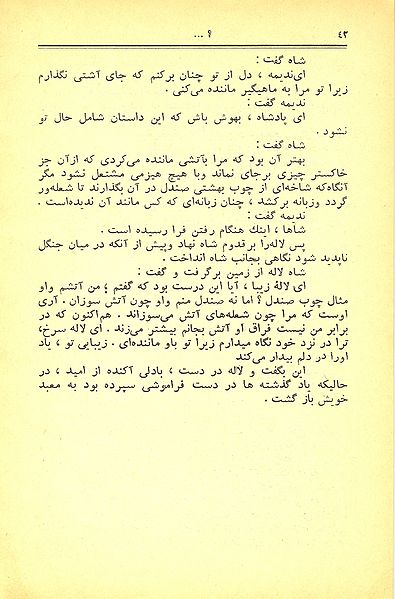 ۴۳
؟ ...
شاه گفت :
ای‌ندیمه ، دل از تو چنان برکنم که جای آشتی نگذارم
زیرا تو مرا به ماهیگیر ماننده می‌کنی .
ندیمه گفت :
ای پادشاه ، بهوش باش که این داستان شامل حال تو
نشود .
شاه گفت :
بهتر آن بود که مرا بآتشی ماننده می‌کردی که ازآن جز
خاکستر چیزی برجای نماند وبا هیچ هیزمی مشتعل نشود مگر
آنگاه‌که شاخه‌ای از چوب بهشتی صندل در آن بگذارند تا شعله‌ور
گردد وزبانه برکشد ، چنان زبانه‌ای که کس مانند آن ندیده‌است .
ندیمه گفت :
شاها ، اینك هنگام رفتن فرا رسیده است .
پس لاله‌را برقدوم شاه نهاد وپیش از آنکه در میان جنگل
ناپدید شود نگاهی بجانب شاه انداخت .
شاه لاله از زمین برگرفت و گفت :
ای لالهٔ زیبا ، آیا این درست بود که گفتم ؛ من آتشم واو
مثال چوب صندل ؟ اما نه صندل منم واو چون آتش سوزان . آری
اوست که مرا چون شعله‌های آتش می‌سوزاند . هم‌اکنون که در
برابر من نیست فراق او آتش بجانم بیشتر می‌زند . ای لاله سرخ،
ترا در نزد خود نگاه میدارم زیرا تو باو ماننده‌ای . زیبایی تو ، یاد
اورا در دلم بیدار می‌کند
این بگفت و لاله در دست ، بادلی آکنده از امید ، در
حالیکه یاد گذشته ها در دست فراموشی سپرده بود به معبد
خویش باز گشت .